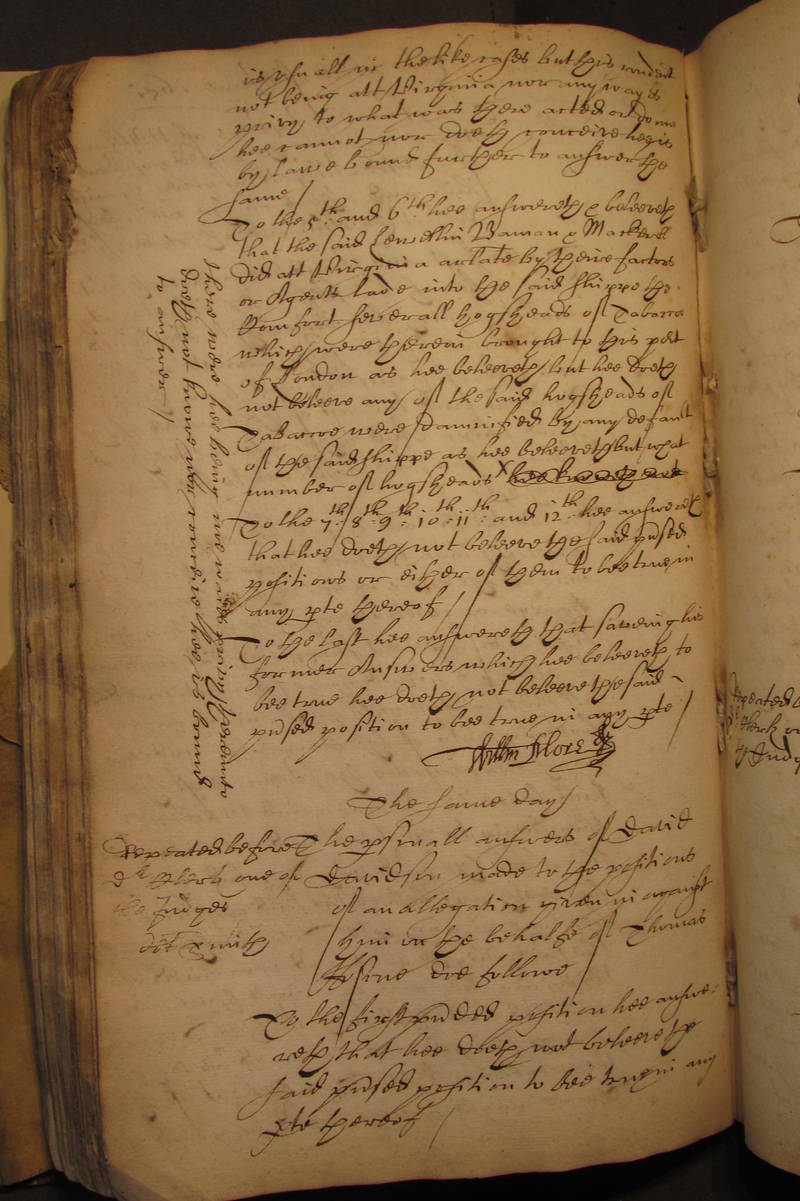 is usuall in the like cases but this rendent
not being att Virginia nor any wayes
privy to what was there acted or done
hee cannot nor doeth conceive hee is
by lawe bound further to answer the
same /
To the 5th and 6th hee answereth & beleeveth
that the said Lewellin Baman & Mackrell
did att Virginia arlate by theire factors
or Agents lade into the said shippe the
Comfort severall hogsheads of Tabacco
which were therein brought to this port
of London as hee beleeveth, but hee doeth
not beleeve any of the said hogsheads of
Tabaccoe were damnified by any default
of the said shippe as hee beleeveth but what
number of hogsheads x hee knoweth not
To the 7th 8th 9th 10th 11th and 12th hee answereth
that hee doeth not beleeve the said pnsed
positions or either of them to bee true in
any pte thereof /
To the last hee answereth that saveing his
former Answers which hee beleeveth to
bee true hee doeth not beleeve the said
pnsed position to bee true in any pte /
there were hee being noe wayes privy thereunto
doeth not knowe nor conceive hee is bound
to answer /
The same day /
Repeated before
dr Clerk one of
the Judges
The psonall answers of David
Davidson made to the positions
of an allegation given in against
him on the behalfe of Thomas
doe followe
To the first pnsed position hee answe=
reth that hee doeth not beleeve the
said pnsed position to bee true in any
pte thereof /
Repeated
dr Clerk